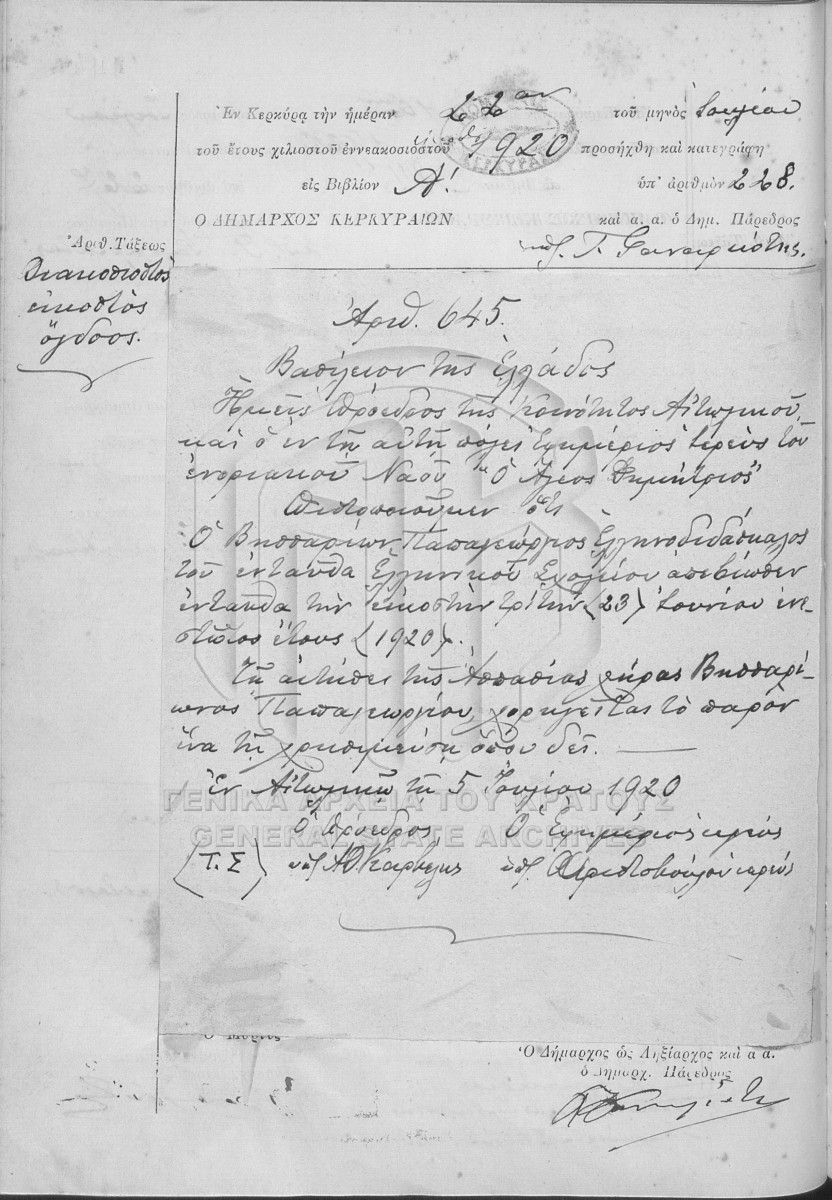 Ἐν Κερκύρᾳ τὴν ἡμέραν 22αν τοῦ μηνὸς Ἰουλίου
τοῦ ἔτους χιλιοστοῦ ἐννεακοσιοστοῦ εἰκοστοῦ 1920 προσήχθη καὶ κατεγράφη
εἰς Βιβλίον Α΄. ὑπ᾽ ἀριθμὸν 228.
Ο ΔΗΜΑΡΧΟΣ ΚΕΡΚΥΡΑΙΩΝ καὶ α. α. ὁ Δημ. Πάρεδρος
Ἀριθ. Τάξεως
Διακοσιοστὸς
εἰκοστὸς
ὄγδοος.
Ἀριθ. 645.
Βασίλειον τῆς Ἑλλάδος
Ἡμεῖς Πρόεδρος τῆς Κοινότητος Αἰτωλικοῦ,
καὶ ὁ ἐν τῇ αὐτῇ πόλει ἐφημέριος ἱερεὺς τοῦ
ἐνοριακοῦ Ναοῦ "ὁ Ἅγιος Δημήτριος"
Πιστοποιοῦμεν ὅτι
Ὁ Βησσαρίων Παπαγεώργιος Ἑλληνοδιδάσκαλος
τοῦ ἐνταῦθα Ἑλληνικοῦ Σχολείου ἀπεβίωσεν
ἐνταῦθα τὴν εἰκοστὴν τρίτην (23) Ἰουνίου ἐνε-
στῶτος ἔτους (1920).
Τῇ αἰτήσει τῆς Ἀσπασίας χήρας Βησσαρί-
ωνος Παπαγεωργίου, χορηγεῖται τὸ παρὸν
ἵνα τῇ χρησιμεύσῃ ὅπου δεῖ.
Ἐν Αἰτωλικῷ τῇ 5 Ἰουλίου 1920
ΓΕΝΙΚΑ ΑΡΧΕΙΑ ΤΟΥ ΚΡΑΤΟΥΣ
GENERAL STATE ARCHIVES
Ὁ Πρόεδρος Ὁ Ἐφημέριος ἱερεὺς
(Τ.Σ)
Ὁ Δήμαρχος ὡς Ληξίαρχος καὶ α α.
ὁ Δημαρχ. Πάρεδρος